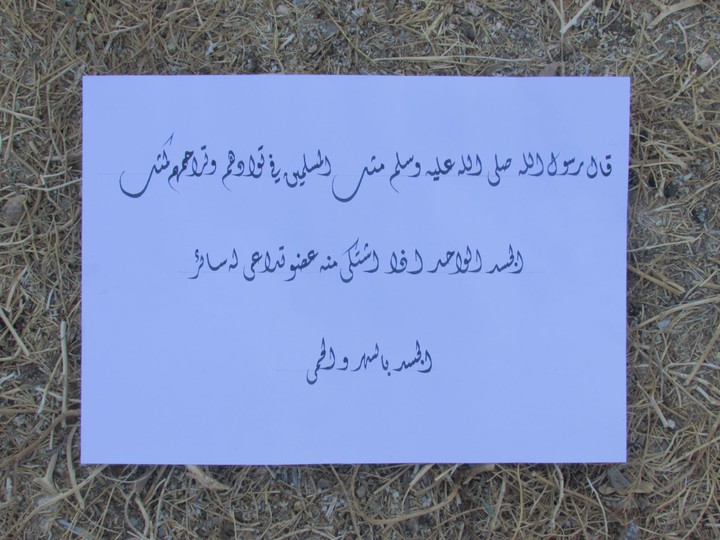 قال رسول الله صلى الله عليه وسلم مثل المسلمين في توادهم وتراحمهم كمثل
الجسد الواحد اذا اشتكى منه عضو تداعى له سائر
الجسد بالسهر والحمى